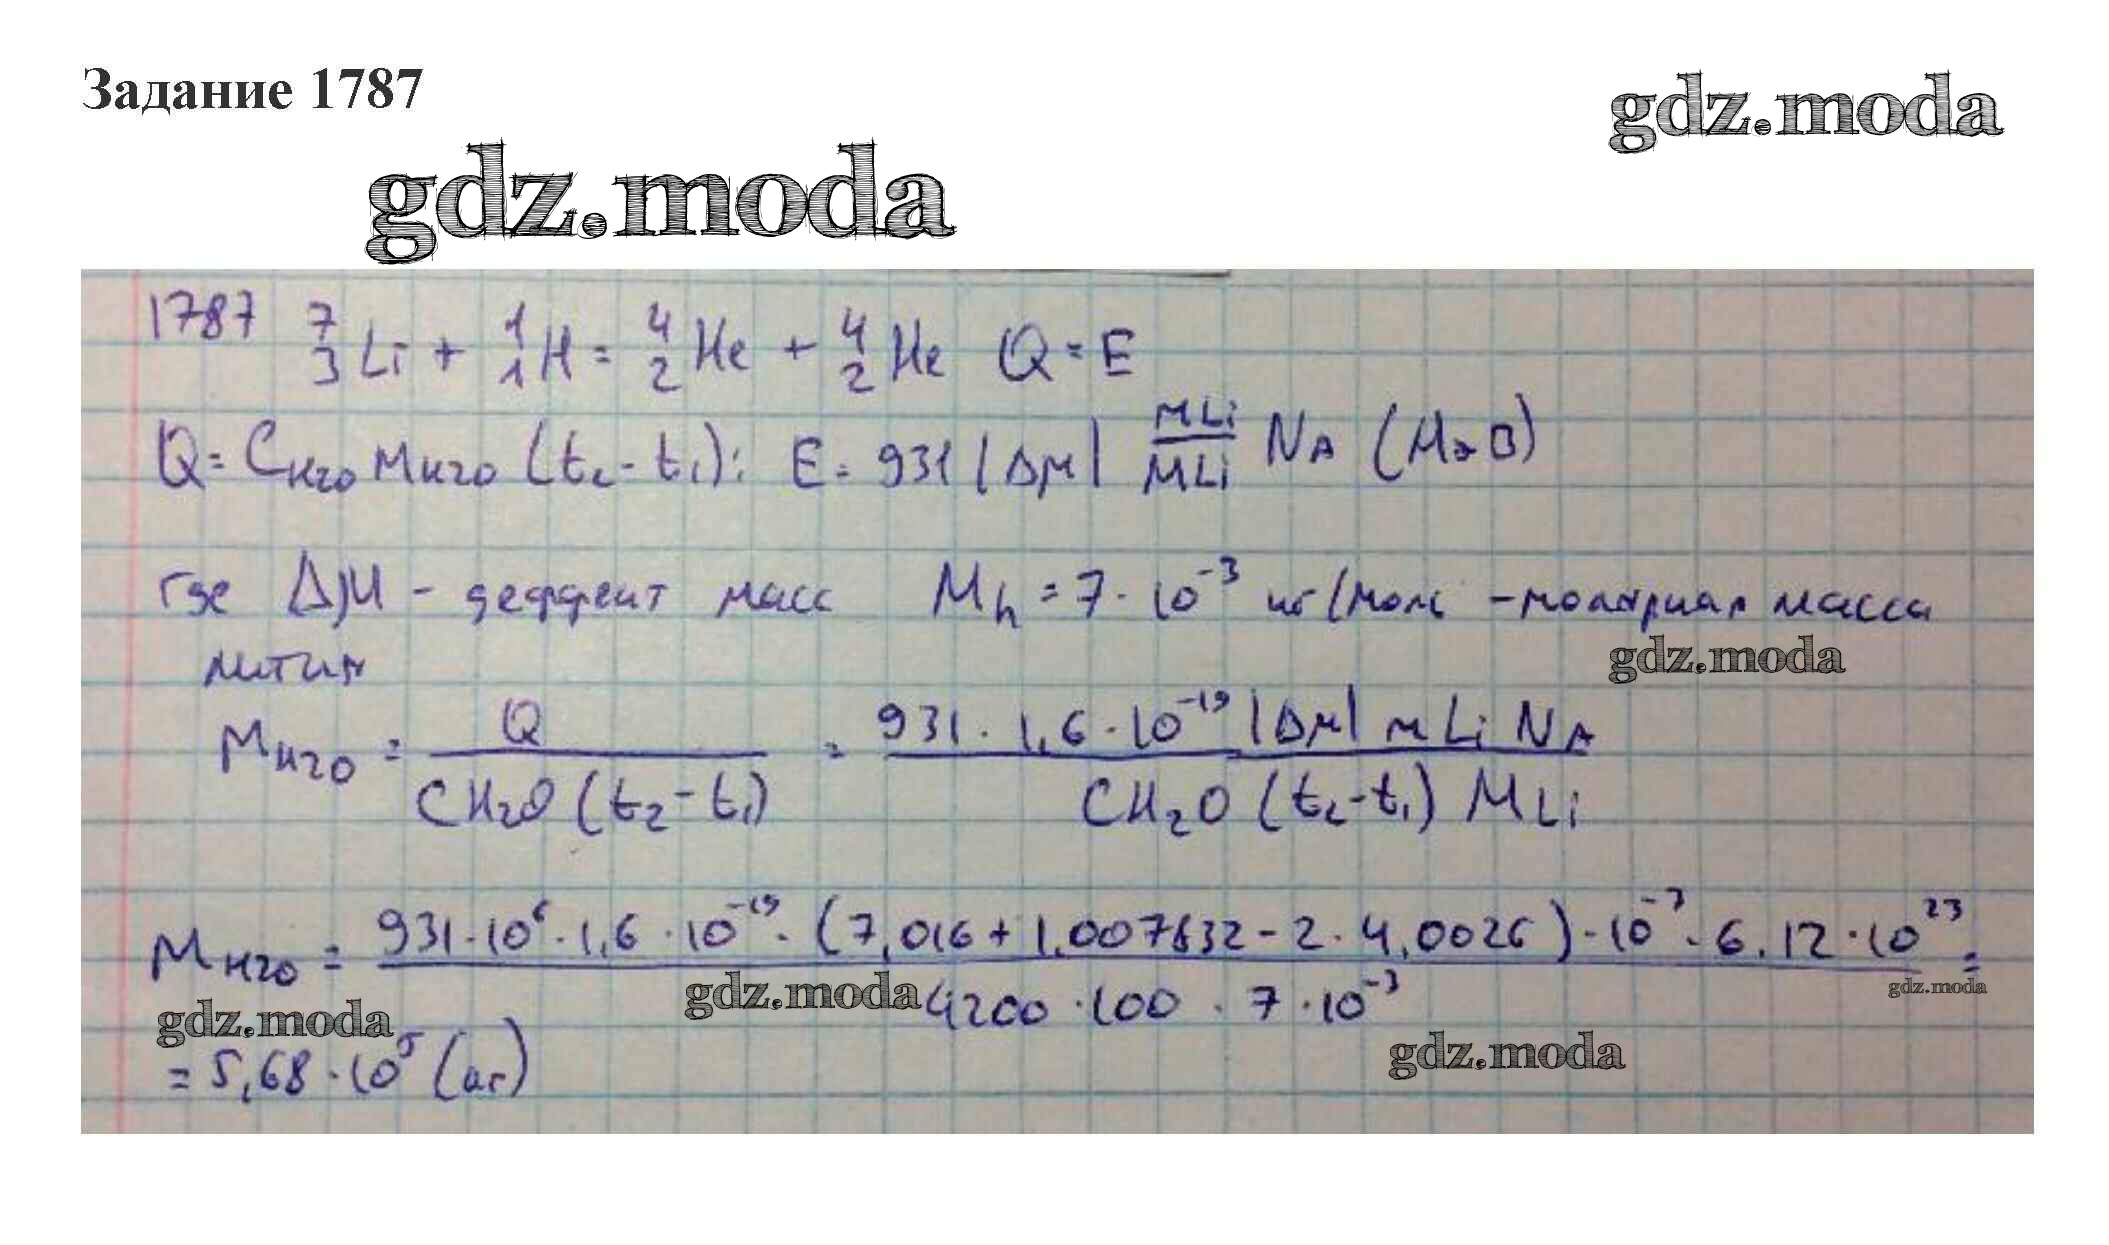 Задание 1787
gdz.moda
gdz.moda
1787 ⁷₃Li + ¹₁H = ⁴₂He + ⁴₂He Q = E
Q = Cн₂о mн₂о (t₂ - t₁); E = 931 |Δμ| mLi/MLi NA (МэВ)
где Δμ - деффект масс Mh = 7 · 10⁻³ кг/моль - молярная масса
gdz.moda
лития
Mн₂о = Q / CH₂O (t₂ - t₁) = 931 · 1,6 · 10⁻¹⁹ |Δμ| mLi NA / CH₂O (t₂ - t₁) MLi
Mн₂о = 931 · 10⁶ · 1,6 · 10⁻¹⁹ · (7,016 + 1,007832 - 2 · 4,0026) · 10⁻³ · 6.12 · 10²³ / 4200 · 100 · 7 · 10⁻³ =
gdz.moda
gdz.moda
gdz.moda
gdz.moda
= 5,68 · 10⁵ (кг)